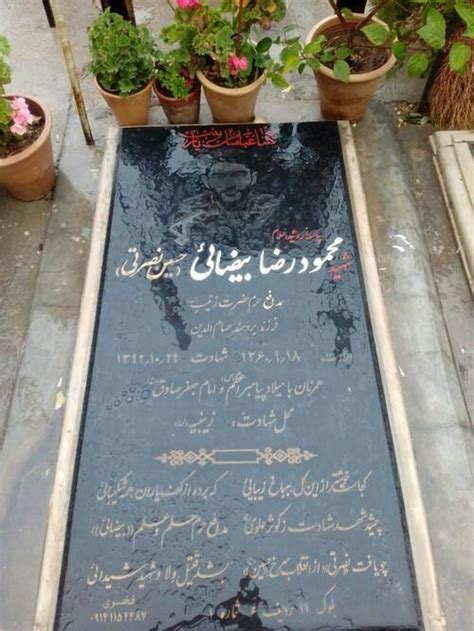 پاسدار رشید اسلام
شهید محمودرضا بیضائی (حسین نصرتی)
مدافع حرم حضرت زینب
فرزند برومند حسام الدین
ولادت: ۱۳۶۰.۹.۱۸ شهادت ۱۳۹۲.۱۰.۲۹
همزمان با میلاد پیامبر اعظم و امام جعفر صادق
محل شهادت: زینبیه
کجاست خوشتر از این گل بباغ زیبایی که برده از کف یاران همه شکیبائی
چشید شهد شهادت ز کوثر علوی مدافع حرم حلم و علم «بیضائی»
چو یافت «نصرتی» از انقلاب سرخ حسین شد قتیل ولا و شهید شیدائی
فخری
بلوک ۱۱ ردیف شماره
۰۹۱۴۱۱۵۴۴۸۷